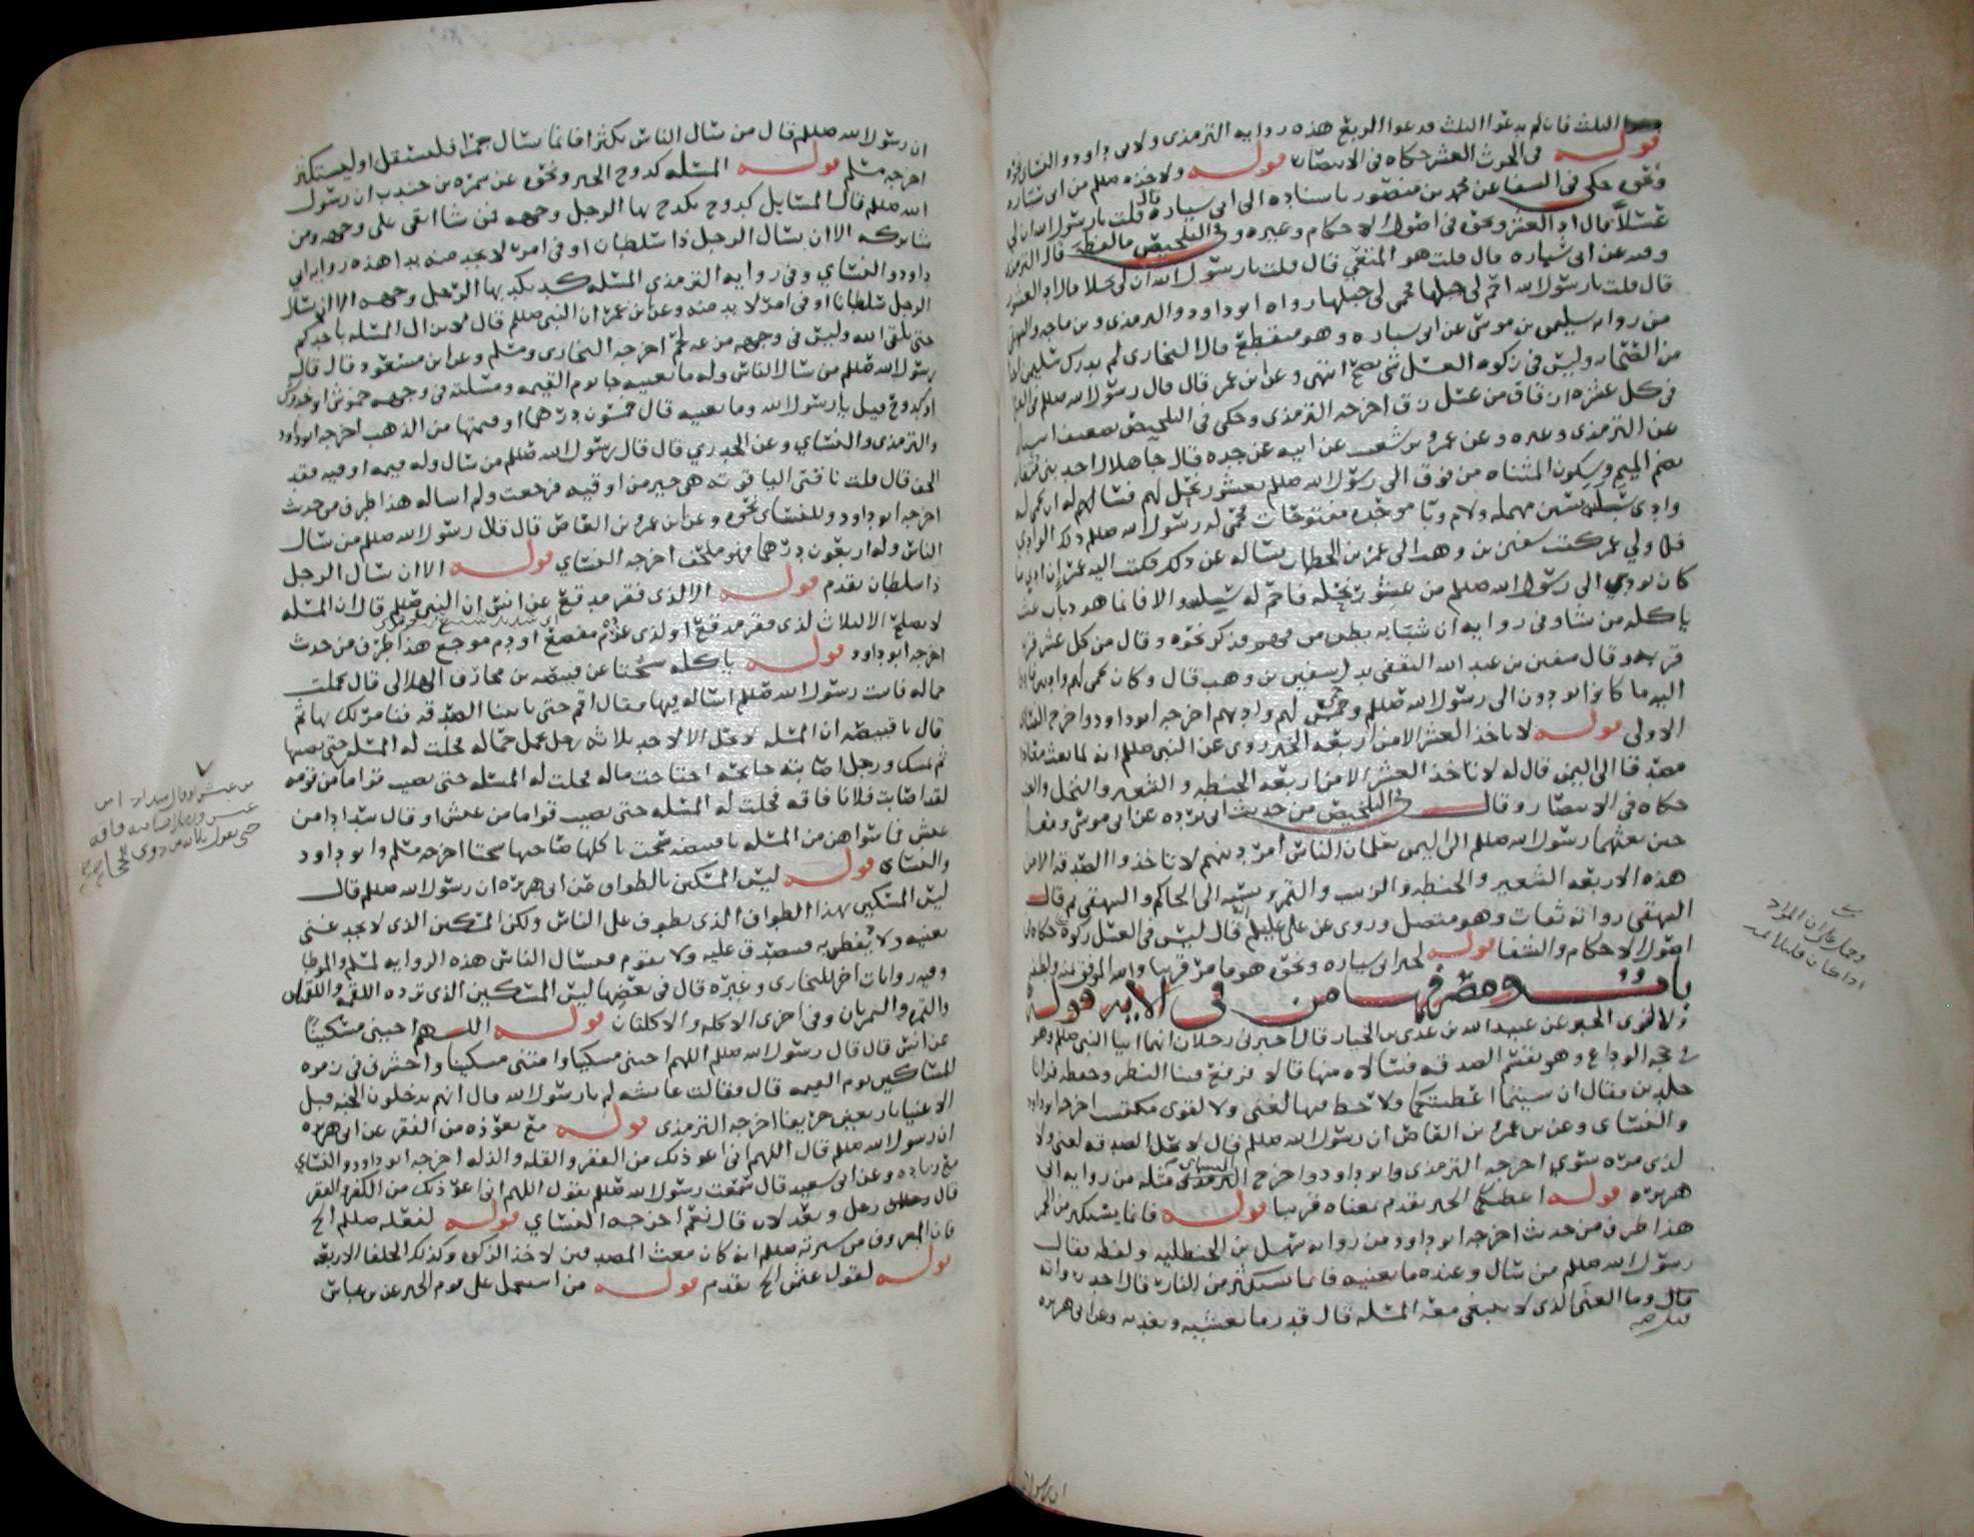 الثلث فان لم تدعوا الثلث فدعوا الربع هذه روايه الترمذي ولابي داود والنساي نحوه
قوله في الحرث العشر حكاه في الانتصار قوله ولاخذه صللم من ابي سياره
ونحوه حكى في الشفا عن محمد بن منصور باسناده الى ابي سياره قال قلت يا رسول الله ان لي
عسلا قال اد العشر ونحوه في اصول الاحكام وغيره وفي التلخيص ما لفظه قال الترمذي
وفيه عن ابي سياره قال قلت هو المتعي قال قلت يا رسول الله ان لي نحلا قال اد العشور
قال قلت يا رسول الله احم لي جبلها فحمى لي جبلها رواه ابو داود والترمذي وبن ماجه والبيهقي
من روايه سليمن بن موسى عن ابي سياره وهو منقطع قال البخاري لم يدرك سليمن احدا
من الصحابه وليس في زكوة العسل شي يصح انتهى وعن ابن عمر قال قال رسول الله صللم في العسل
في كل عشرة ازقاق من عسل زق اخرجه الترمذي وحكى في التلخيص تضعيف اسناده
عن الترمذي وغيره وعن عمرو بن شعيب عن ابيه عن جده قال جا هلال احد بني متعان
بضم الميم وسكون المثناه من فوق الى رسول الله صللم بعشور نحل لهم فسالهم له ان يحمي له
وادي سلبه بسين مهمله ولام وبا موحده مفتوحات فحمى له رسول الله صللم ذلك الوادي
فلما ولي عمر كتب سفين بن وهب الى عمر بن الخطاب يساله عن ذلك فكتب اليه عمر ان ادى ما
كان يودي الى رسول الله صللم من عشور نحله فاحم له سلبه والا فانما هو ذباب غيث
ياكله من شا وفي روايه ان شبابه بطن من فهم فذكر نحوه وقال من كل عشر قرب
قربه وقال سفين بن عبد الله الثقفي بدل سفين بن وهب قال وكان يحمي لهم واديين فادوا
اليه ما كانوا يودون الى رسول الله صللم وحمى لهم واديهم اخرجه ابو داود واخرج النساي
الاولى قوله لا ياخذ العشر الا من اربعه الخبر روي عن النبي صللم انه لما بعث معاذا
مصدقا الى اليمن قال له لا تاخذ العشر الا من اربعه الحنطه والشعير والنخل والعنب
حكاه في الانتصار وقال في التلخيص من حديث ابي برده عن ابي موسى ومعاذ
حين بعثهما رسول الله صللم الى اليمن يعلمان الناس امر دينهم لا تاخذوا الصدقه الا من
هذه الاربعه الشعير والحنطه والزبيب والتمر ونسبه الى الحاكم والبيهقي ثم قال
البيهقي رواته ثقات وهو متصل وروي عن علي عليلم انه قال ليس في العسل زكوة حكاه في
اصول الاحكام والشفا قوله لخبر ابي سياره ونحوه هو ما مر قريبا والله الموفق بمنه ولطفه
باب ومصرفها من في الايه قوله
ولا لقوي الخبر عن عبيد الله بن عدي بن الخيار قال اخبرني رجلان انهما اتيا النبي صللم وهو
في حجه الوداع وهو يقسم الصدقه فسالاه منها قالا فرفع فينا النظر وخفظه فرانا
جلدين فقال ان شيتما اعطيتكما ولا حظ فيها لغني ولا لقوي مكتسب اخرجه ابو داود
والنساي وعن بن عمرو بن العاص ان رسول الله صللم قال لا تحل الصدقه لغني ولا
لذي مره سوي اخرجه الترمذي وابو داود واخرج النساي مثله من روايه ابي
هريره قوله اعطيكما الخبر تقدم بمعناه قريبا قوله فانما يستكثر من الجمر
هذا طرف من حديث اخرجه ابو داود من روايه سهل بن الحنظليه ولفظه فقال
رسول الله صللم من سال وعنده ما يغنيه فانما يستكثر من النار قال احد رواته
قال وما الغنى الذي لا ينبغي معه المسله قال قدر ما يعشيه ويغديه وعن ابي هريره
ان رسول الله
ان رسول الله صللم قال من سال الناس تكثرا فانما يسال جمرا فليستقل او ليستكثر
اخرجه مسلم قوله المسله كدوح الخبر ونحوه عن سمره بن جندب ان رسول
الله صللم قال المسايل كدوح يكدح بها الرجل وجهه فمن شا ابقى على وجهه ومن
شا تركه الا ان يسال الرجل ذا سلطان او في امر لا يجد منه بدا هذه روايه ابي
داود والنساي وفي روايه الترمذي المسله كد يكد بها الرجل وجهه الا ان يسال
الرجل سلطانا او في امر لا بد منه وعن بن عمر ان النبي صللم قال لا تزال المسله باحدكم
حتى يلقى الله وليس في وجهه مزعه لحم اخرجه البخاري ومسلم وعن ابن مسعود قال قال
رسول الله صللم من سال الناس وله ما يغنيه جا يوم القيمه ومسلته في وجهه خموش او خدوش
او كدوح قيل يا رسول الله وما يغنيه قال خمسون درهما او قيمتها من الذهب اخرجه ابو داود
والترمذي والنساي وعن الخدري قال قال رسول الله صللم من سال وله قيمه اوقيه فقد
الحف قال قلت ناقتي الياقوته هي خير من اوقيه فرجعت ولم اساله هذا طرف من حديث
اخرجه ابو داود وللنساي نحوه وعن ابن عمرو بن العاص قال قال رسول الله صللم من سال
الناس وله اربعون درهما فهو ملحف اخرجه النساي قوله الا ان يسال الرجل
ذا سلطان تقدم قوله الا لذي فقر مدقع عن انس ان النبي صللم قال ان المسله
لا تصلح الا لثلاث لذي فقر مدقع او لذي غرم مفضع او دم موجع هذا طرف من حديث
اخرجه ابو داود قوله ياكله سحتا عن قبيصه بن مخارق الهلالي قال تحملت
حماله فاتيت رسول الله صللم اساله فيها فقال اقم حتى تاتينا الصدقه فنامر لك بها ثم
قال يا قبيصه ان المسله لا تحل الا لاحد ثلاثه رجل تحمل حماله فحلت له المسله حتى يصيبها
ثم يمسك ورجل اصابته جايحه اجتاحت ماله فحلت له المسله حتى يصيب قواما من قومه
لقد اصابت فلانا فاقه فحلت له المسله حتى يصيب قواما من عيش او قال سدادا من
عيش فما سواهن من المسله يا قبيصه سحت ياكلها صاحبها سحتا اخرجه مسلم وابو داود
والنساي قوله ليس المسكين بالطواف عن ابي هريره ان رسول الله صللم قال
ليس المسكين بهذا الطواف الذي يطوف على الناس ولكن المسكين الذي لا يجد غنى
يغنيه ولا يفطن به فيتصدق عليه ولا يقوم فيسال الناس هذه الروايه لمسلم والموطا
وفيه روايات اخر للبخاري وغيره قال في بعضها ليس المسكين الذي ترده اللقمه واللقمتان
والتمره والتمرتان وفي اخرى الاكله والاكلتان قوله اللهم احيني مسكينا
عن انس قال قال رسول الله صللم اللهم احيني مسكينا وامتني مسكينا واحشرني في زمره
المساكين يوم القيمه قال فقالت عايشه لم يا رسول الله قال انهم يدخلون الجنه قبل
الاغنيا باربعين خريفا اخرجه الترمذي قوله مع تعوذه من الفقر عن ابي هريره
ان رسول الله صللم قال اللهم اني اعوذ بك من الفقر والقله والذله اخرجه ابو داود والنساي
مع زياده وعن ابي سعيد قال سمعت رسول الله صللم يقول اللهم اني اعوذ بك من الكفر والفقر
قال رجل ويعدلان قال نعم اخرجه النساي قوله لفعله صللم الخ
فان المعروف من سيرته صللم انه كان يبعث المصدقين لاخذ الزكوه وكذلك الخلفا الاربعه
قوله لقول عثمن الخ تقدم قوله من استعمل على قوم الخبر عن بن عباس
من عيش او قال سداد من
عيش ورجل اصابته فاقه
حتى يقول ثلاثه من ذوي الحجا